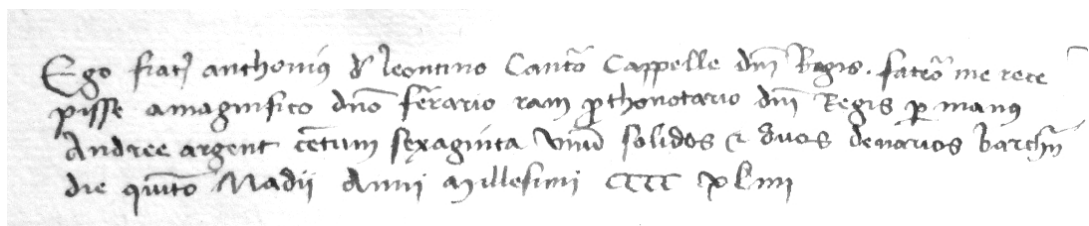 Ego frater anthonius de leontino Cantor Cappelle dni Regis. fateor me rece
pisse a magnifico dno ferrario ram prothonotario dni Regis per manus
Andree argent centum sexaginta unum solidos et duos denarios barchn
die quinto Madii Anni Millesimi CCCC xLiiii